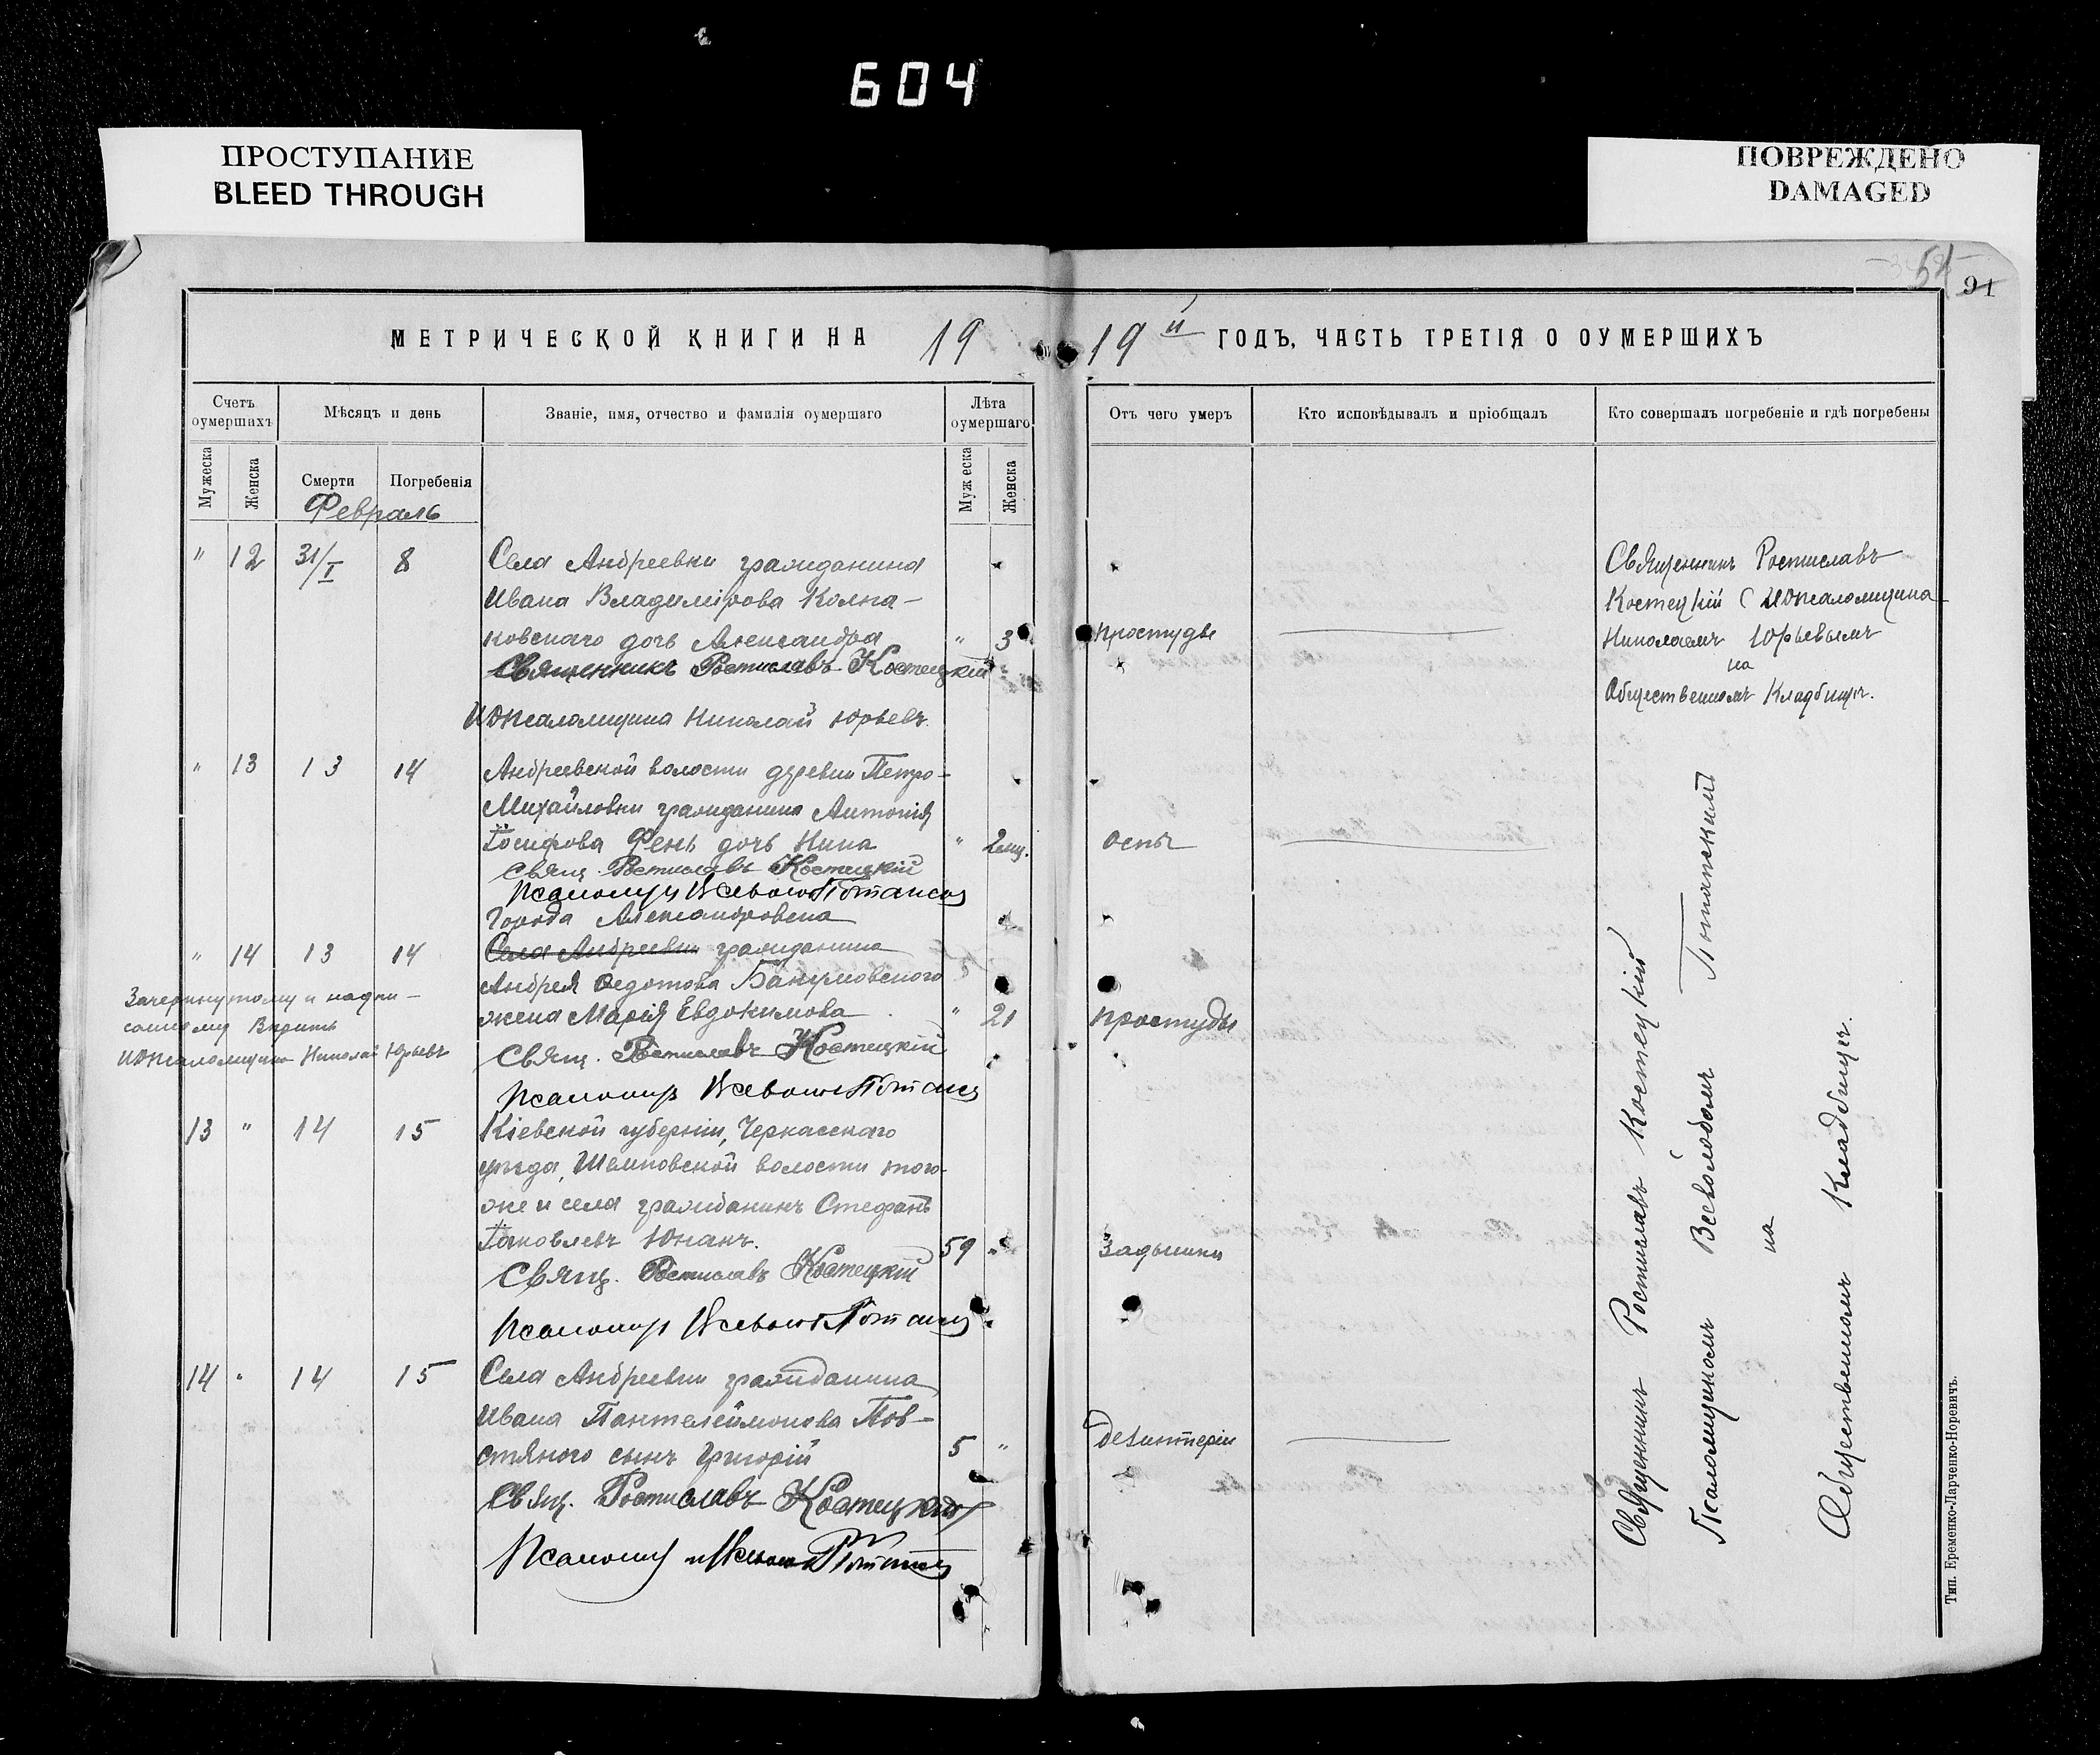 604
ПРОСТУПАНИЕ
BLEED THROUGH
ПОВРЕЖДЕНО
DAMAGED
51
91
МЕТРИЧЕСКОЙ КНИГИ НА 19
19й ГОДЪ, ЧАСТЬ ТРЕТІЯ О ОУМЕРШИХЪ
Счетъ оумершихъ
Мѣсяцъ и день
Званіе, имя, отчество и фамилія оумершаго
Лѣта оумершаго
Отъ чего умеръ
Кто исповѣдывалъ и пріобщалъ
Кто совершалъ погребеніе и гдѣ погребены
Мужеска
Женска
Смерти
Погребенія
Мужеска
Женска
Февраль
" 12 31/I 8 Села Андреевки гражданина
Ивана Владимірова Колпа-
ковскаго дочь Александра " 3 простуды
Священникъ Ростиславъ Костецкій
ИОПсаломщика Николай Юрьевъ.
Священникъ Ростиславъ
Костецкій с ИОПсаломщика
Николаемъ Юрьевымъ
на
Общественномъ Кладбищѣ.
" 13 13 14 Андреевской волости деревни Петро-
Михайловки гражданина Антонія
Іосифова Фень дочь Нина " 2 мц. оспы
Свящ. Ростиславъ Костецкій
Города Александровска
" 14 13 14 Села Андреевки гражданина
Андрея Федотова
жена Марія Евдокимова " 21 простуды
Зачеркнутому и надпи-
санному Вѣрить
ИОПсаломщика Николай Юрьевъ
Свящ. Ростиславъ Костецкій
13 " 14 15 Кіевской губерніи, Черкасскаго
уѣзда, волости того-
же и села гражданинъ Стефанъ
Іаковлевъ Юханъ. 59 " Задышки
Свящ. Ростиславъ Костецкій
14 " 14 15 Села Андреевки гражданина
Ивана Пантелеймонова Пов-
стяного сынъ Григорій 5 " Дезинтеріи
Свящ. Ростиславъ Костецкій
Священникъ Ростиславъ Костецкій
Псаломщикомъ Всеволодомъ
на
Общественномъ Кладбищѣ.
Тип. Еременко-Ларченко-Норевичъ.